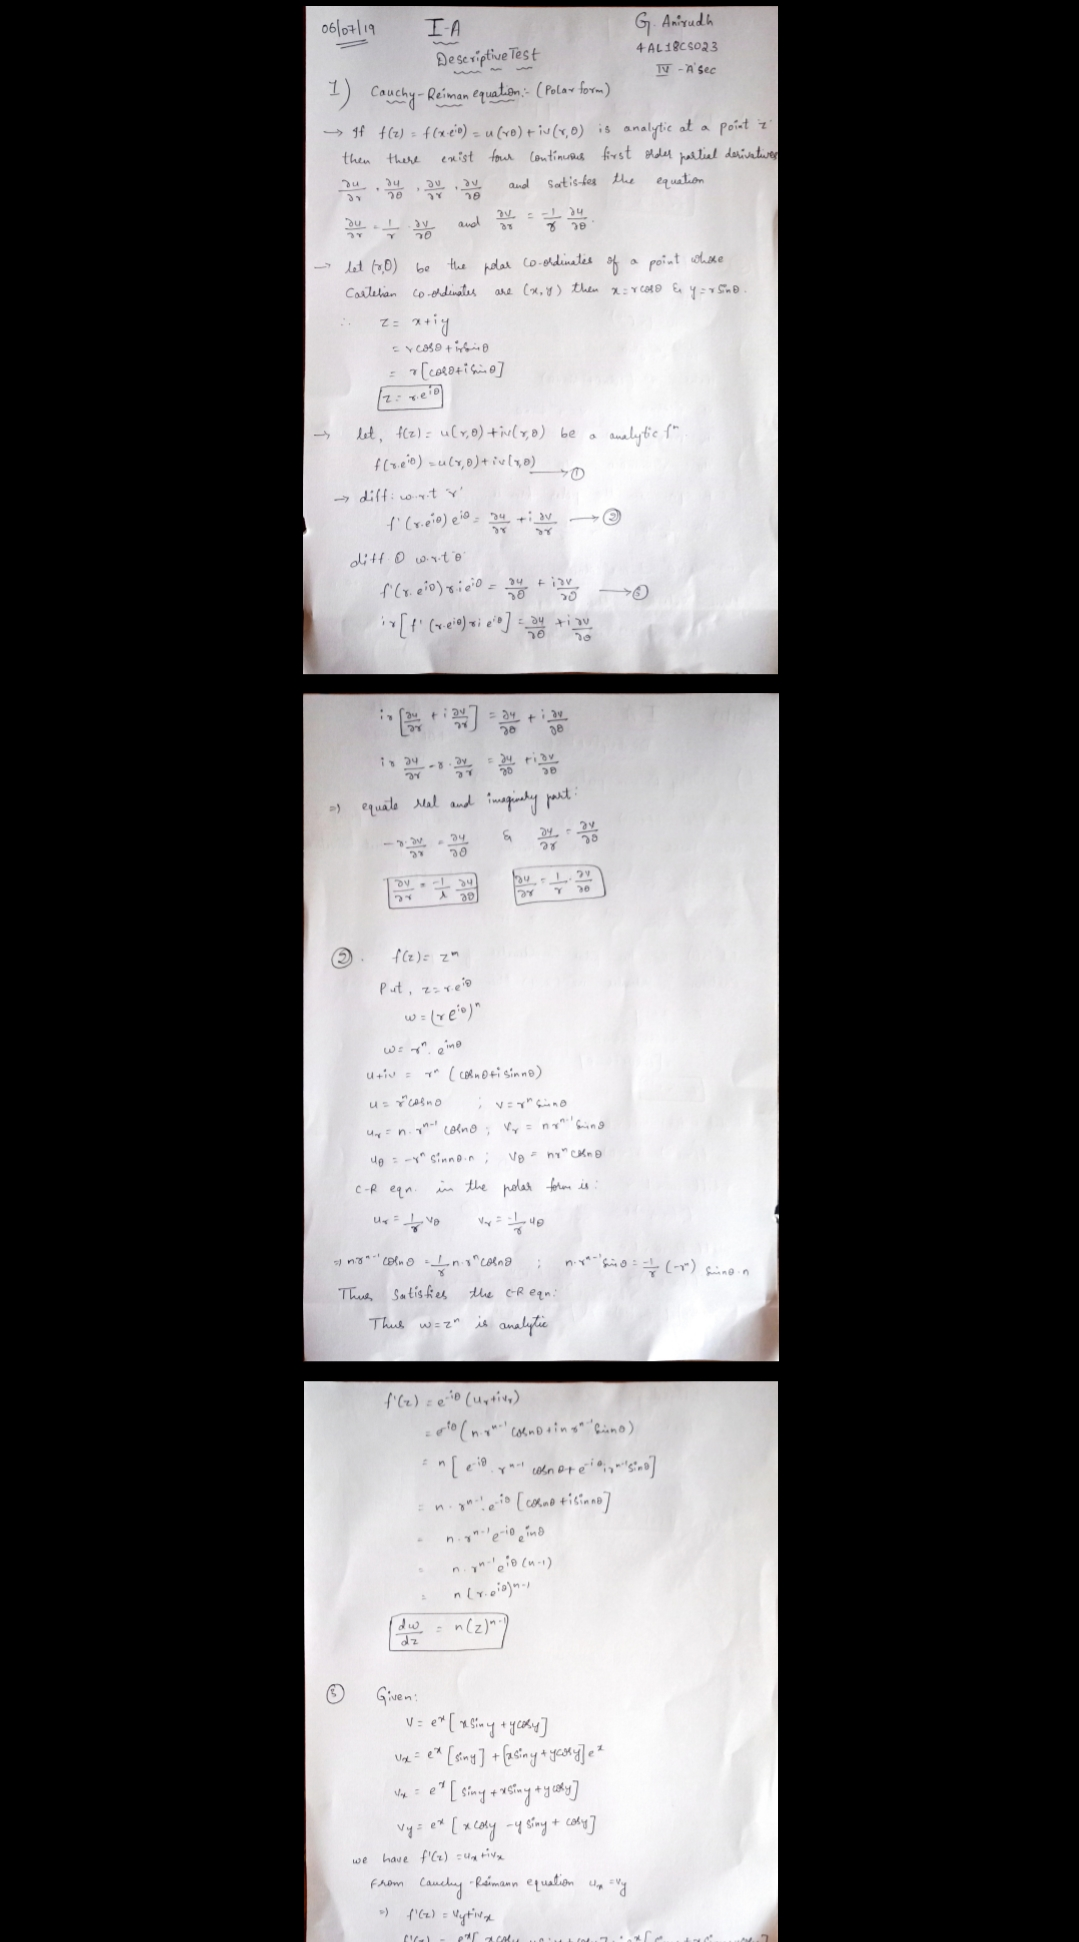 06/07/19
I-A
G. Anirudh
Descriptive Test
4AL18CS023
IV - 'A' sec
1) Cauchy-Reiman equation:- (Polar form)
→ If f(z) = f(x·e^iθ) = u(rθ) + iv(r,θ) is analytic at a point 'z'
then there exist four continuous first order partial derivatives
∂u/∂r , ∂u/∂θ , ∂v/∂r , ∂v/∂θ and satisfes the equation
∂u/∂r = 1/r · ∂v/∂θ and ∂v/∂r = -1/r ∂u/∂θ.
→ let (r,θ) be the polar co-ordinates of a point whose
Cartesian co-ordinates are (x,y) then x=rcosθ & y=rsinθ.
∴ z = x+iy
= rcosθ + irsinθ
= r[cosθ+isinθ]
z = r·e^iθ
→ let, f(z) = u(r,θ) + iv(r,θ) be a analytic fⁿ.
f(r·e^iθ) = u(r,θ) + iv(r,θ) → ①
→ diff: w.r.t 'r'
f'(r·e^iθ) e^iθ = ∂u/∂r + i ∂v/∂r → ②
diff ① w.r.t θ
f'(r·e^iθ) r i e^iθ = ∂u/∂θ + i ∂v/∂θ → ③
ir[f'(r·e^iθ) ri e^iθ] = ∂u/∂θ + i ∂v/∂θ
ir[∂u/∂r + i ∂v/∂r] = ∂u/∂θ + i ∂v/∂θ
ir ∂u/∂r - r · ∂v/∂r = ∂u/∂θ + i ∂v/∂θ
⇒ equate real and imaginary part:
-r · ∂v/∂r = ∂u/∂θ & ∂u/∂r = ∂v/∂θ
∂v/∂r = -1/r ∂u/∂θ ∂u/∂r = 1/r · ∂v/∂θ
② . f(z) = zⁿ
Put, z = r·e^iθ
w = (re^iθ)ⁿ
w = rⁿ · e^inθ
u+iv = rⁿ (cosnθ+isinnθ)
u = rⁿcosnθ ; v = rⁿ sinnθ
u_r = n·r^n-1 cosnθ ; v_r = nr^n-1 sinnθ
u_θ = -rⁿ sinnθ·n ; v_θ = nrⁿ cosnθ
C-R eqn. in the polar form is:
u_r = 1/r v_θ v_r = -1/r u_θ
⇒ nr^n-1 cosnθ = 1/r n·rⁿcosnθ ; n·r^n-1 sinθ = -1/r (-rⁿ) sinnθ·n
Thus satisfies the C-R eqn:
Thus w=zⁿ is analytic
f'(z) = e^-iθ (u_r+iv_r)
= e^-iθ (n·r^n-1 cosnθ + in r^n-1 sinnθ)
= n[e^-iθ · r^n-1 cosnθ + e^-iθ i r^n-1 sinθ]
= n · r^n-1 · e^-iθ [cosnθ + isinnθ]
= n·r^n-1 e^-iθ e^inθ
= n·r^n-1 e^iθ(n-1)
= n(r·e^iθ)^n-1
dw/dz = n(z)^n-1
③ Given:
V = e^x[xsiny + ycosy]
Vx = e^x[siny] + [xsiny+ycosy]e^x
Vx = e^x[siny + xsiny + ycosy]
Vy = e^x[xcosy - ysiny + cosy]
we have f'(z) = ux + ivx
From Cauchy-Reimann equation ux = vy
⇒ f'(z) = Vy+iVx